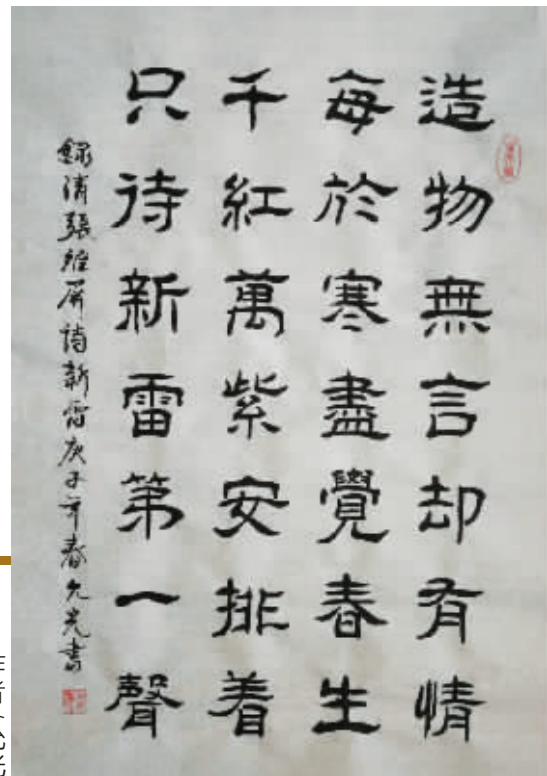 造物無言却有情
每於寒盡覺春生
千紅萬紫安排着
只待新雷第一聲
錄清張維屏詩新雷庚子年春允光書